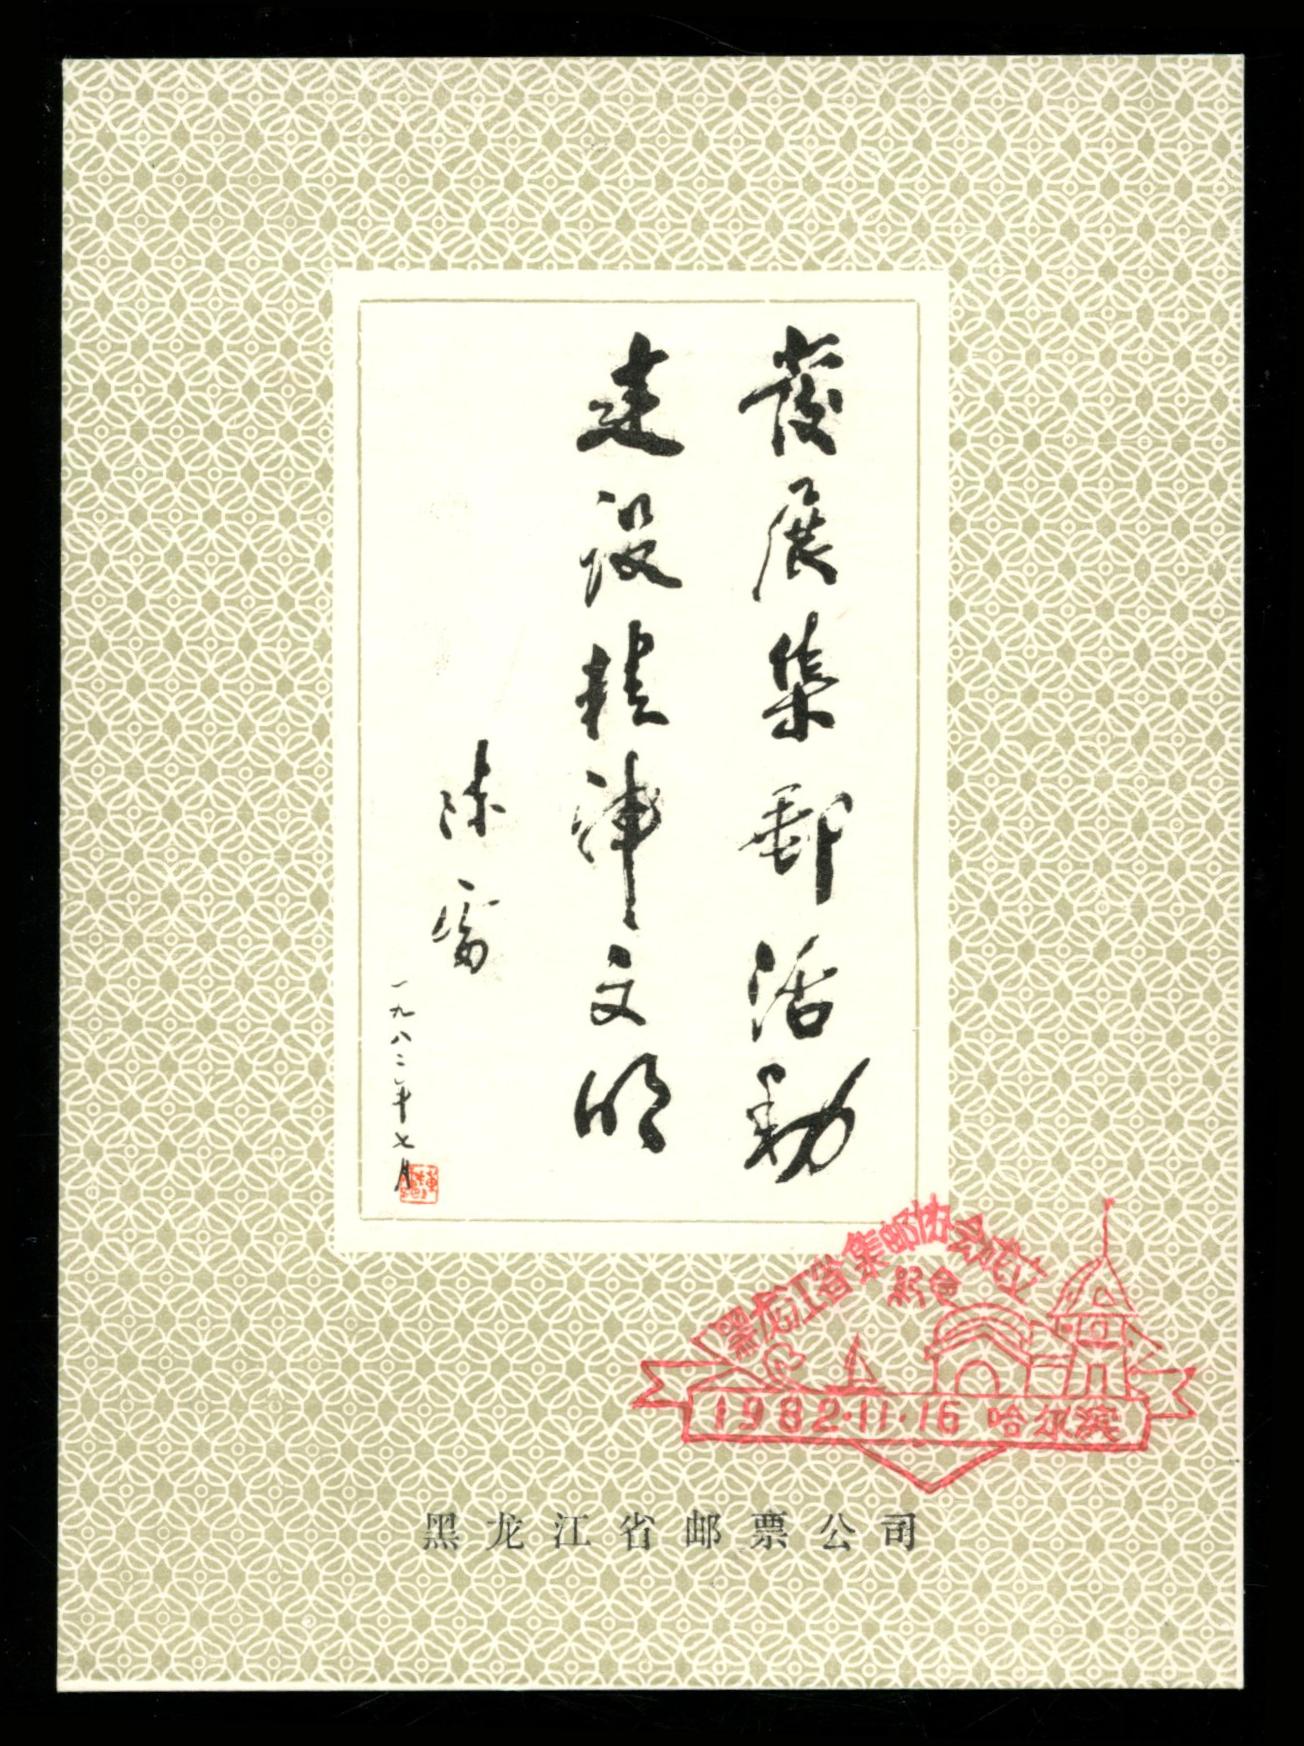 發展集郵活動
建设精神文明
陈雷
一九八二年七月
黑龙江省集邮协会成立
纪念
1982·11·16 哈尔滨
黑龙江省邮票公司